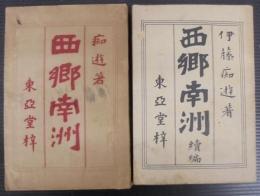 痴遊著
西郷南洲
東亞堂梓
伊藤痴遊著
西郷南洲
續編
東亞堂梓